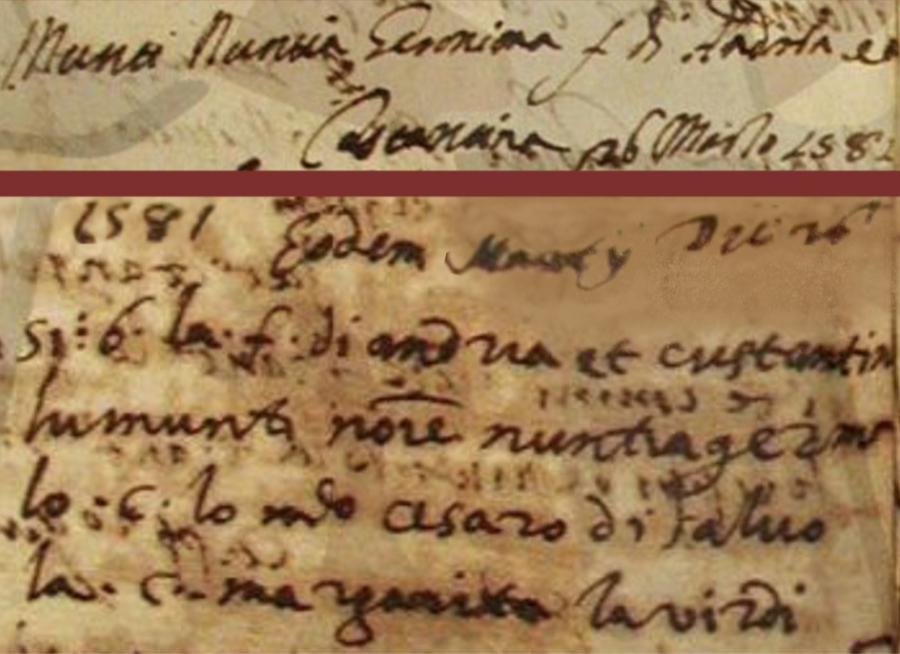 Munti Nuntia Geronima f di Andria et
Costantina 26 Marzo 1581
1581 Eodem Martij Die 26
si: b· la· f· di andria et custantin
lu munti no͞re nuntia gerrm
lo · c · lo m͞do cesaro di saluo
la · c · margarita la virdi